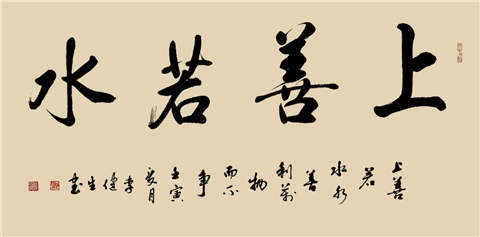 上善若水
上善若水水善利萬物而不争壬寅夏月李健生書